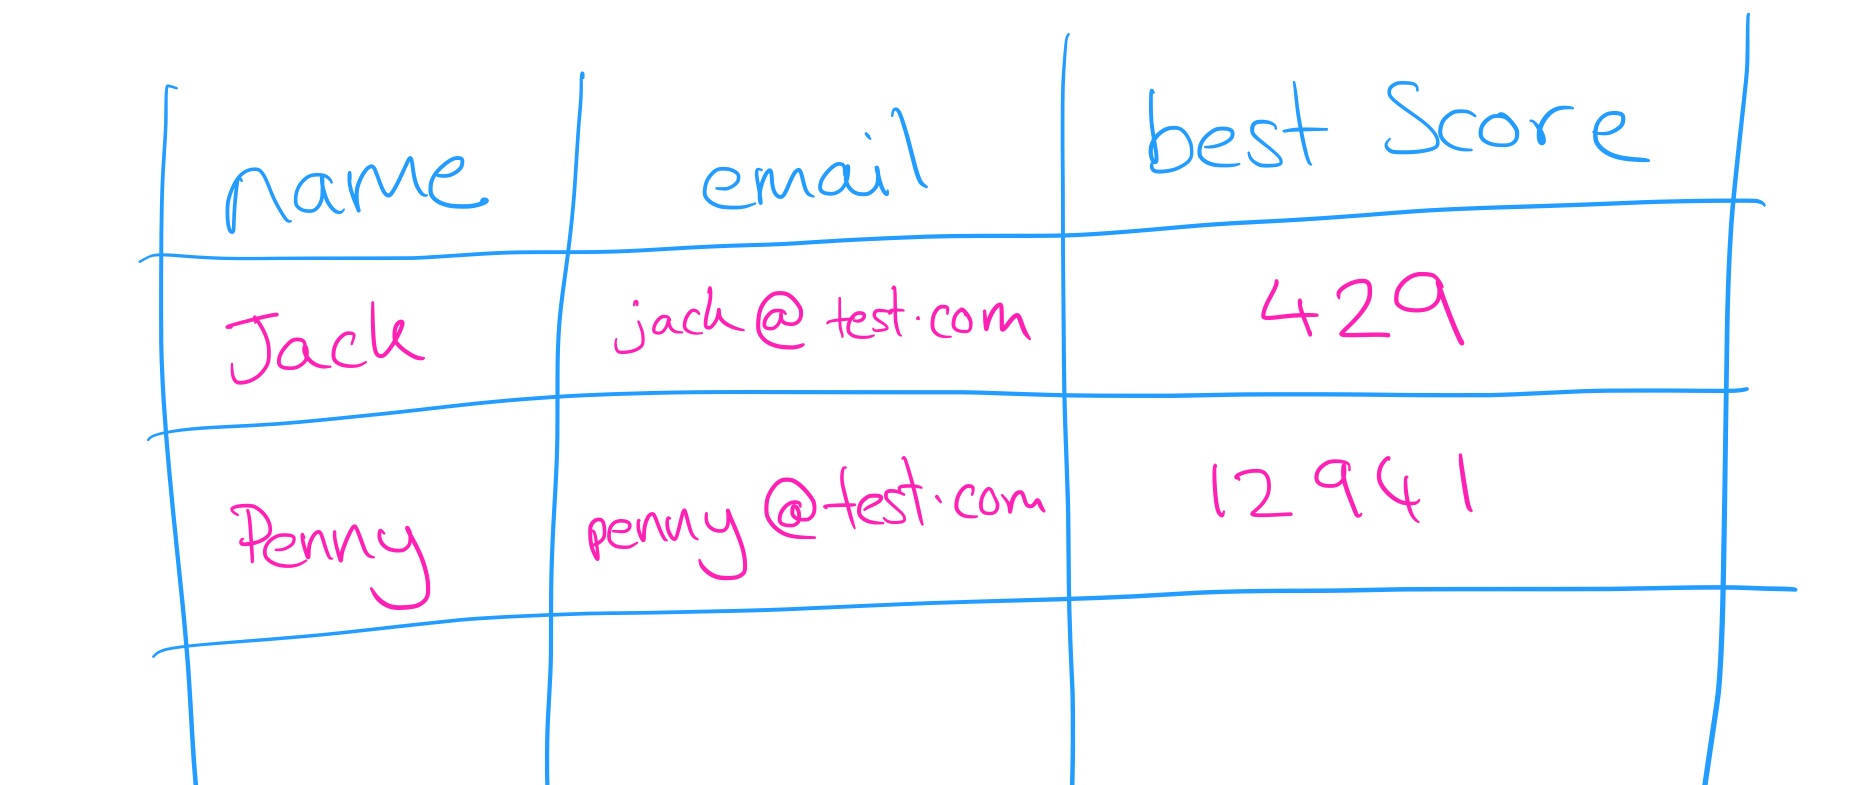 name email best Score
Jack jack@test.com 429
Penny penny@test.com 12941